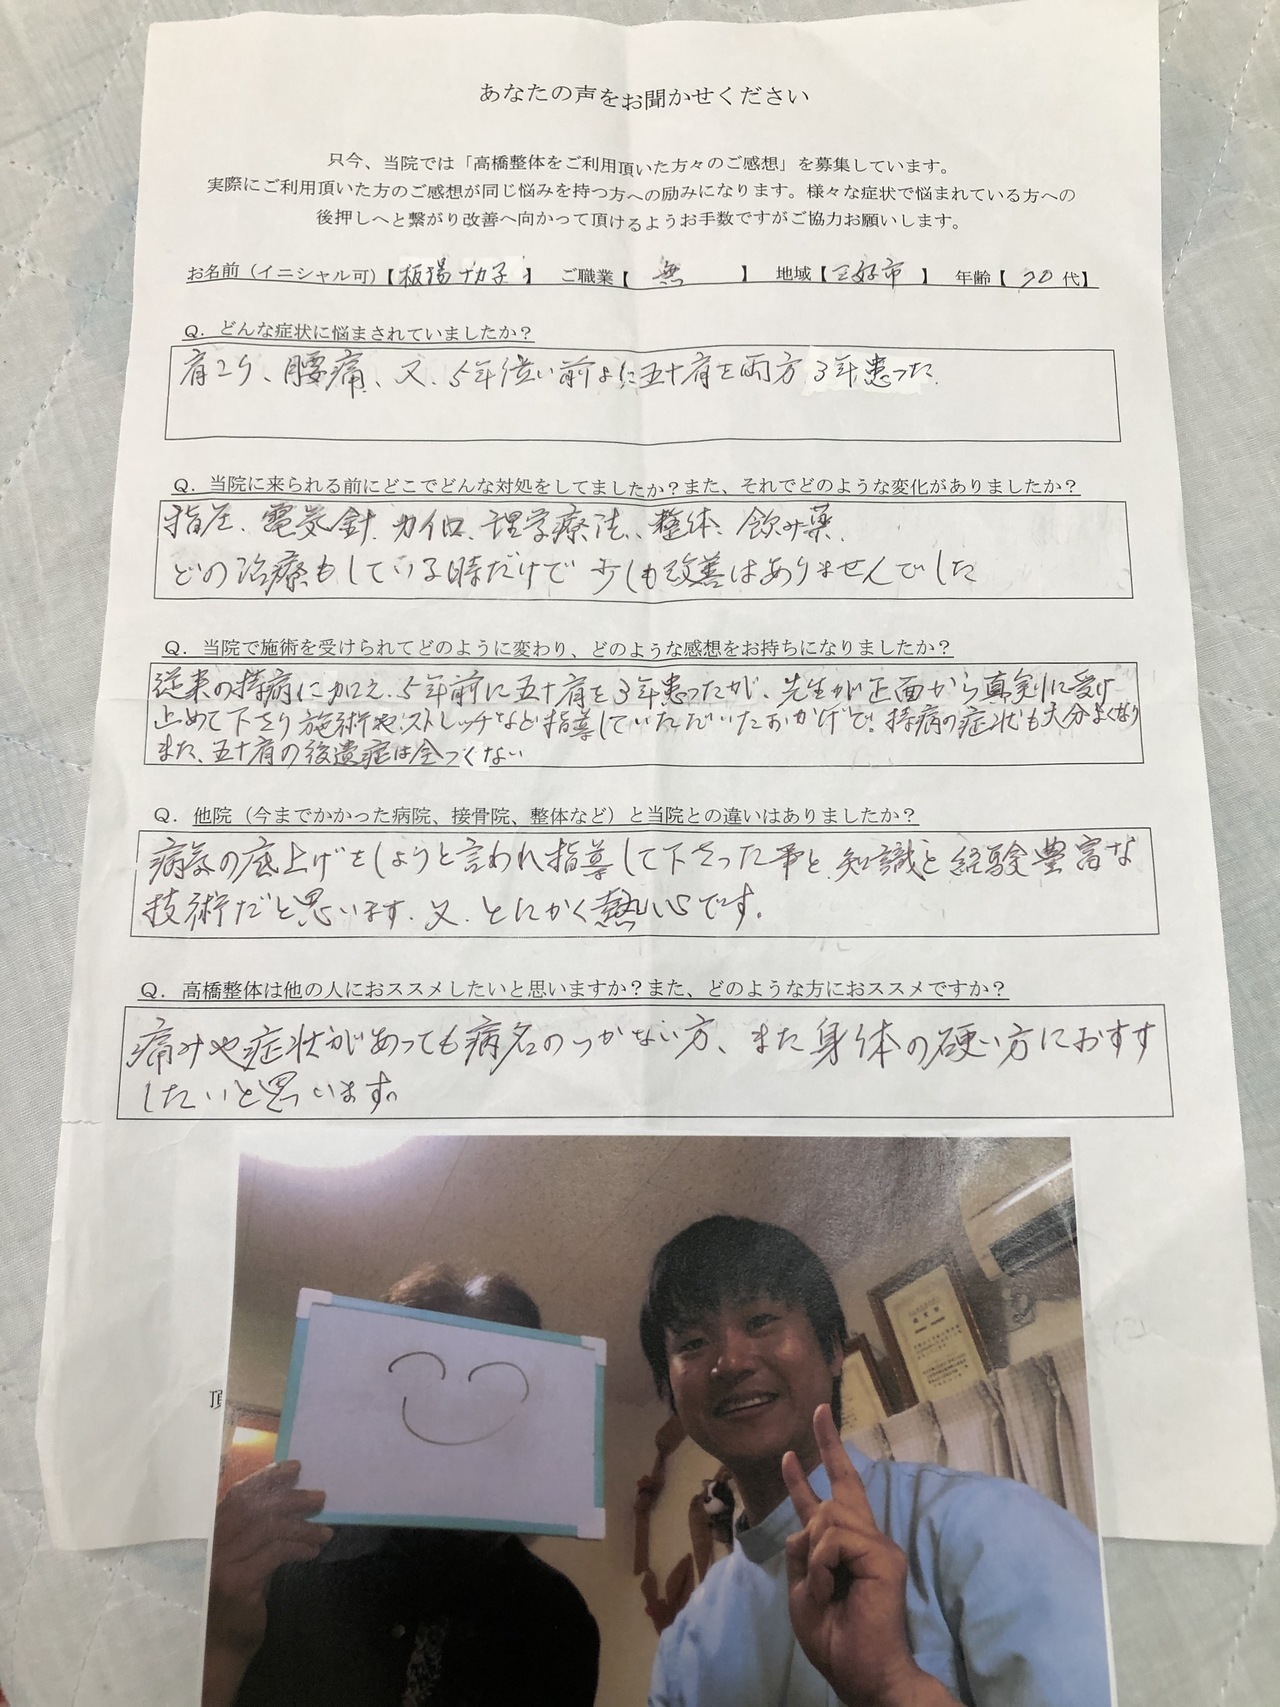 あなたの声をお聞かせください
只今、当院では「高橋整体をご利用頂いた方々のご感想」を募集しています。
実際にご利用頂いた方のご感想が同じ悩みを持つ方への励みになります。様々な症状で悩まれている方への
後押しへと繋がり改善へ向かって頂けるようお手数ですがご協力お願いします。
お名前（イニシャル可）【板場 子】 ご職業【 無 】 地域【三好市 】 年齢【 70 代】
Q．どんな症状に悩まされていましたか？
肩こり、腰痛、又、5年位い前 に五十肩を両方 3年患った
Q．当院に来られる前にどこでどんな対処をしてましたか？また、それでどのような変化がありましたか？
指圧、電気針、カイロ、理学療法、整体、飲み薬、
どの治療もしている時だけで少しも改善はありませんでした
Q．当院で施術を受けられてどのように変わり、どのような感想をお持ちになりましたか？
従来の持病に加え、5年前に五十肩を3年患ったが、先生が正面から真剣に受け
止めて下さり施術や、ストレッチなど指導していただいたおかげで、持病の症状も大分よくなり
また、五十肩の後遺症は全つくない
Q．他院（今までかかった病院、接骨院、整体など）と当院との違いはありましたか？
病気の底上げをしようと言われ指導して下さった事と、知識と経験豊富な
技術だと思います、又、とにかく熱心です。
Q．高橋整体は他の人におススメしたいと思いますか？また、どのような方におススメですか？
痛みや症状があっても病名のつかない方、また身体の硬い方におすす
したいと思います。
頂